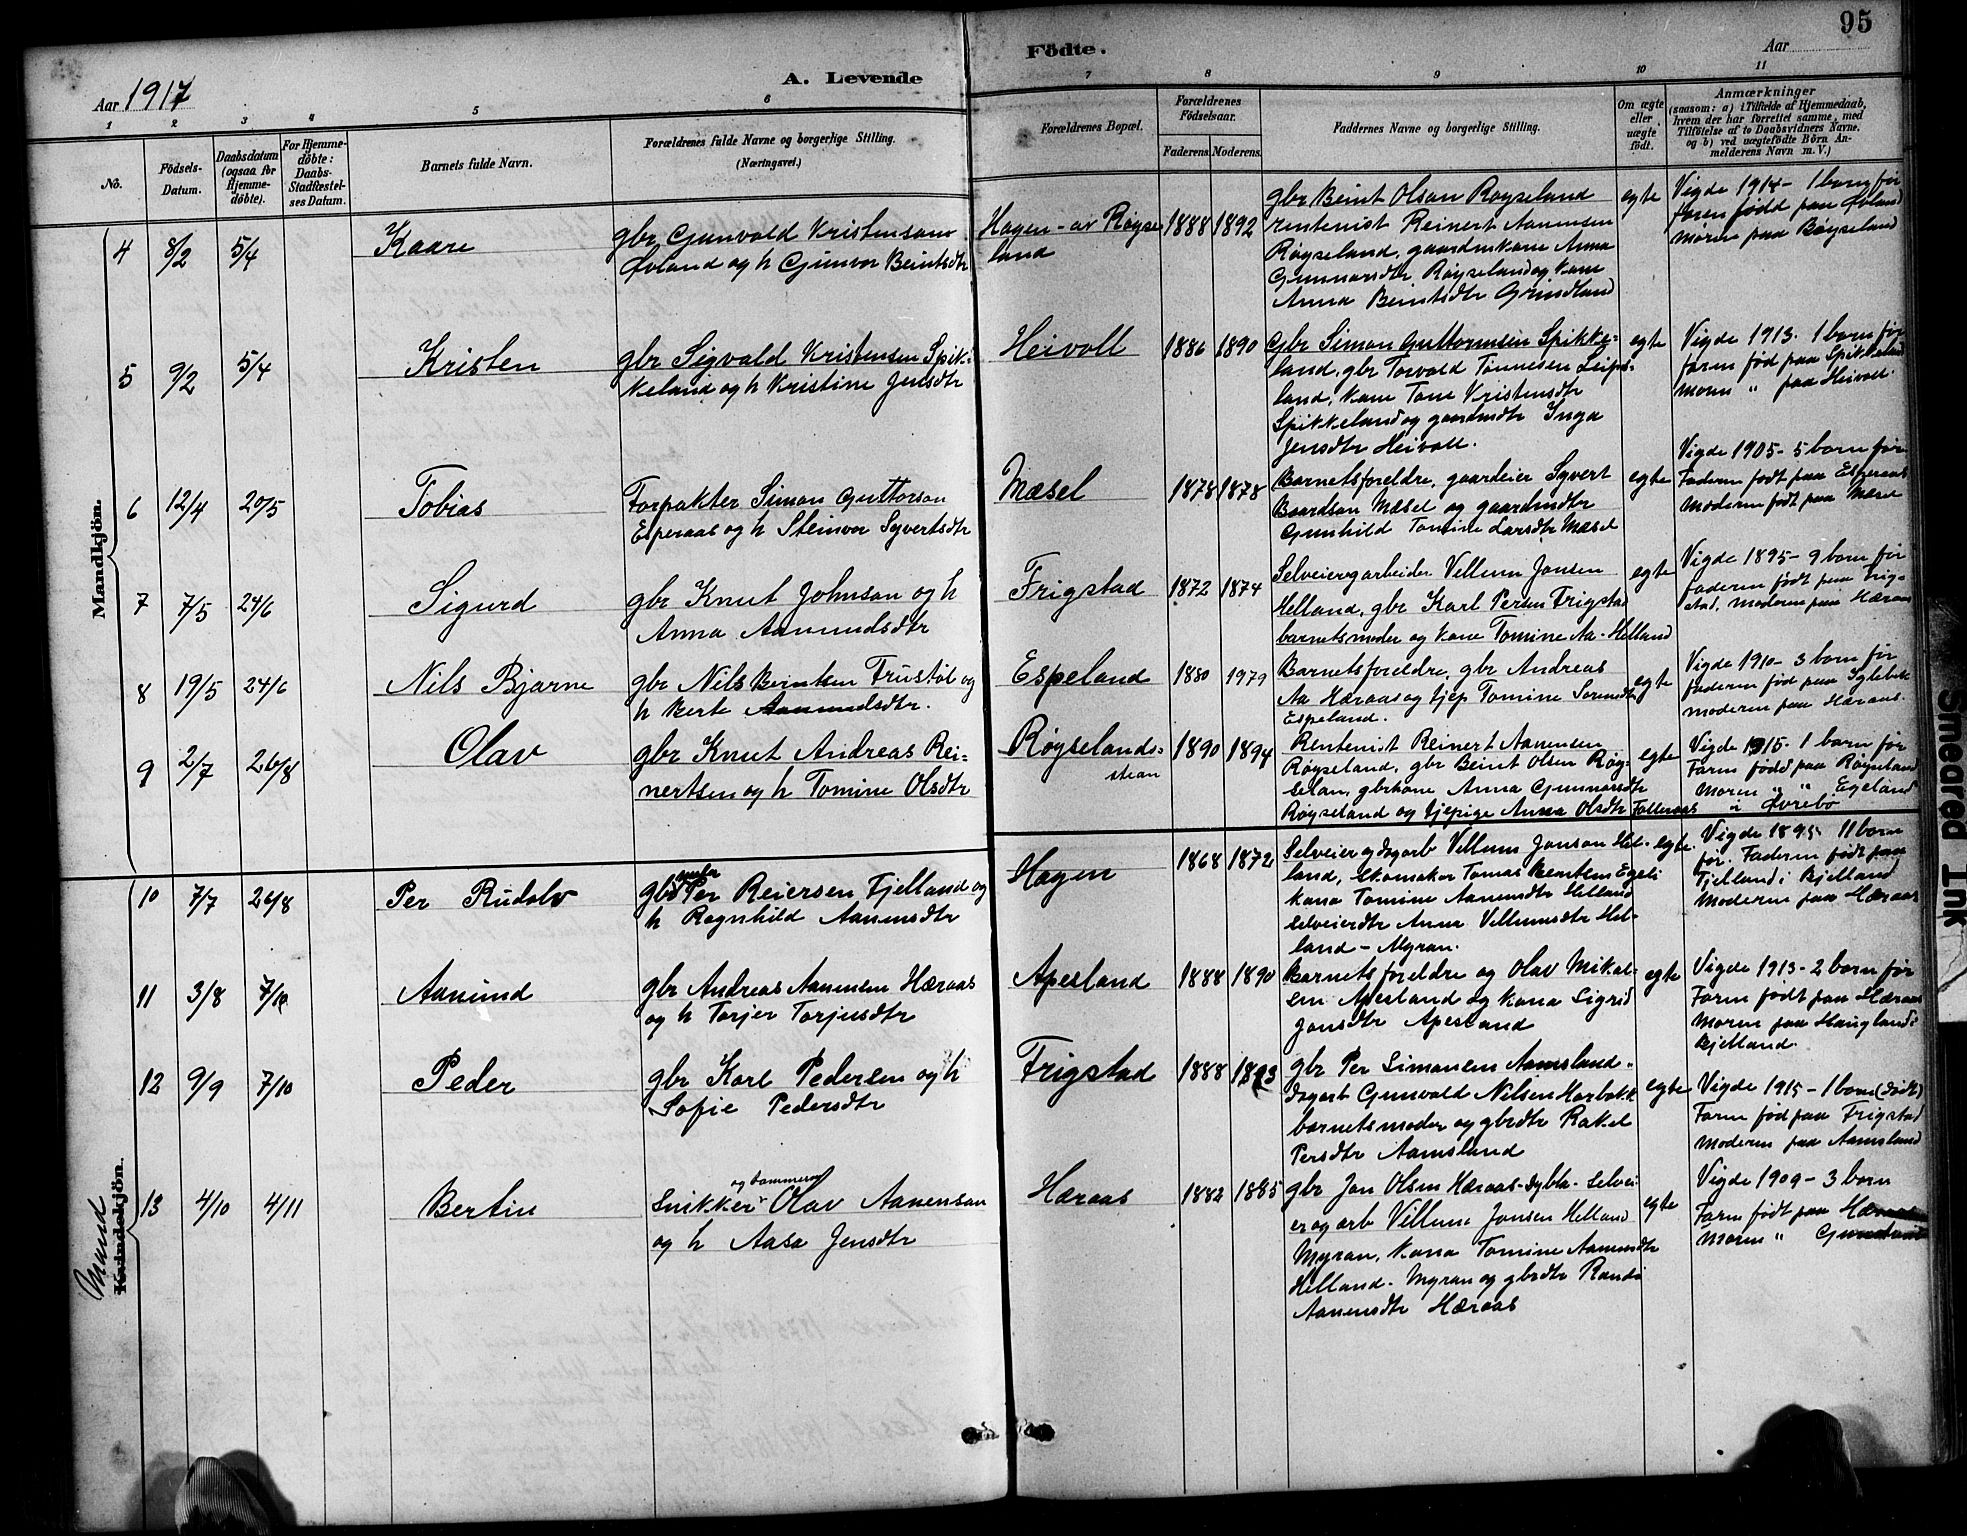 95
A. Levende
Födte.
Aar 1917
Aar
1 2 3 4 5 6 7 8 9 10 11
No.
Födsels-Datum.
Daabsdatum (ogsaa for Hjemmedöbte).
For Hjemmedöbte: Daabs-Stadfæstelses Datum.
Barnets fulde Navn.
Forældrenes fulde Navne og borgerlige Stilling.
(Næringsvei.)
Forældrenes Bopæl.
Forældrenes Födselsaar.
Faderens. Moderens.
Faddernes Navne og borgerlige Stilling.
Om ægte eller uægte födt.
Anmærkninger
(saasom: a) i Tilfælde af Hjemmedaab,
hvem der har forrettet samme, med
Tilföielse af to Daabsvidners Navne,
og b) ved uægtefödte Börn Anmelderens Navn m. V.)
Mandkjön.
4 8/2 5/4 Kaare
gbr Gunvald Kristensøn
Øvland og h Gunvor Beintsdtr
Hagen - av Røyse
land
1888 1892
gbr Beint Olsen Røyseland
rentenist Reinert Aanensen
Røyseland, gaardmkone Anna
Gunnarsdtr Røyseland og kone
Anna Beintsdtr Grindland
egte
Vigde 1914 - 1 born før
faren fødd paa Øvland
moren paa Røyseland
5 9/2 5/4 Kristen
gbr Sigvald Kristensen Spik-
keland og h Kristine Jensdtr
Heivoll
1886 1890
Gbr Simon Guttormsen Spikke-
land, gbr Torvald Tønnesen Leips-
land, kone Tone Kristensdtr
Spikkeland og gaardmdtr Inga
Jensdtr Heivoll.
egte
Vigde 1913. 1 born før
faren fød paa Spikkeland
moren " paa Heivoll.
6 12/4 20/5 Tobias
Forpakter Simon Guttorson
Esperaas og h Steinvor Syvertsdtr
Mæsel
1878 1878
Barnets foreldre, gaardeier Syvert
Baardson Mæsel og gaardmdtr
Gunhild Tomine Larsdtr Mæsel
egte
Vigde 1905 - 5 born før
Faderen født paa Esperaas
Moderen født paa Mæsel
7 7/5 24/6 Sigurd
gbr Knut Johnson og h
Anna Aanundsdtr
Frigstad
1872 1874
Selveier og arbeider Vellum Jonsen
Helland, gbr Karl Persen Frigstad
barnets moder og kone Tomine Aa - Helland
egte
Vigde 1895 - 9 born før
faderen født paa Frig-
stad, moderen paa Hæraas
8 19/5 24/6 Nils Bjarne
gbr Nils Beintsen Trustøl og
h Berte Aanundsdtr.
Espeland
1880 1979
Barnets foreldre, gbr Andreas
Aa Hæraas og tjep Tomine Sorensdtr
Espeland.
egte
Vigde 1910 - 3 born før
faderen fød paa
moderen paa Hæraas.
9 2/7 26/8 Olav
gbr Knut Andreas Rei-
nertsen og h Tomine Olsdtr
Røyselands-
stran
1890 1894
Rentenist Reinert Aanensen
Røyseland, gbr Beint Olsen Røy-
selan, gbrkone Anna Gunnarsdtr
Røyseland og tjepige Anna Olsdtr Følleraas
egte
Vigde 1915 - 1 born før
Faren fødd paa Røyseland
Moren " " Egeland
i Øvrebø
Mand
Kvindekjön.
10 7/7 26/8 Per Rudolv
gbr Per Reiersen Fjelland og
h Ragnhild Aanensdtr
Hagen
1868 1872
Selveier og dagarb Vellum Jonson Hel-
land, skomaker Tomas Beintsen Egeli
kona Tomine Aanensdtr Helland
selveierdtr Anna Vellumsdtr Hel-
land - Myran.
egte
Vigde 1895 11 born
før. Faderen født paa
Fjelland i Bjelland
Moderen paa Hæraas
11 3/8 7/10 Aanund
gbr Andreas Aanensen Hæraas
og h Torjer Torjusdtr
Apesland
1888 1890
Barnets foreldre og Olav Mikal-
sen Apesland og kona Sigrid
Jonsdtr Apesland
egte
Vigde 1913 - 2 born før
Faren født paa Hæraas
Moren paa Haugland i
Bjelland.
12 9/9 7/10 Peder
gbr Karl Pedersen og h
Sofie Pedersdtr
Frigstad
1888 1893
gbr Per Simonsen Aamsland -
dagarb Gunvald Nilsen Harbakk
barnets moder og gbrdtr Rakel
Persdtr Aamsland
egte
Vigde 1915 - 1 born (dødt)
Faren fød paa Frigstad
Moderen paa Aamsland
13 4/10 4/11 Bertin
og tømmerm
Snikker Olav Aanenson
og h Aasa Jensdtr
Hæraas
1882 1885
gbr Jon Olsen Hæraas - selvei-
er og arb Vellum Jonsen Helland
Myran, kona Tomine Aanensdtr
Helland - Myran og gbrdtr Randi
Aanensdtr Hæraas
egte
Vigde 1909 - 3 born
Faren født paa Hæraas
Moren "
Smeared Ink